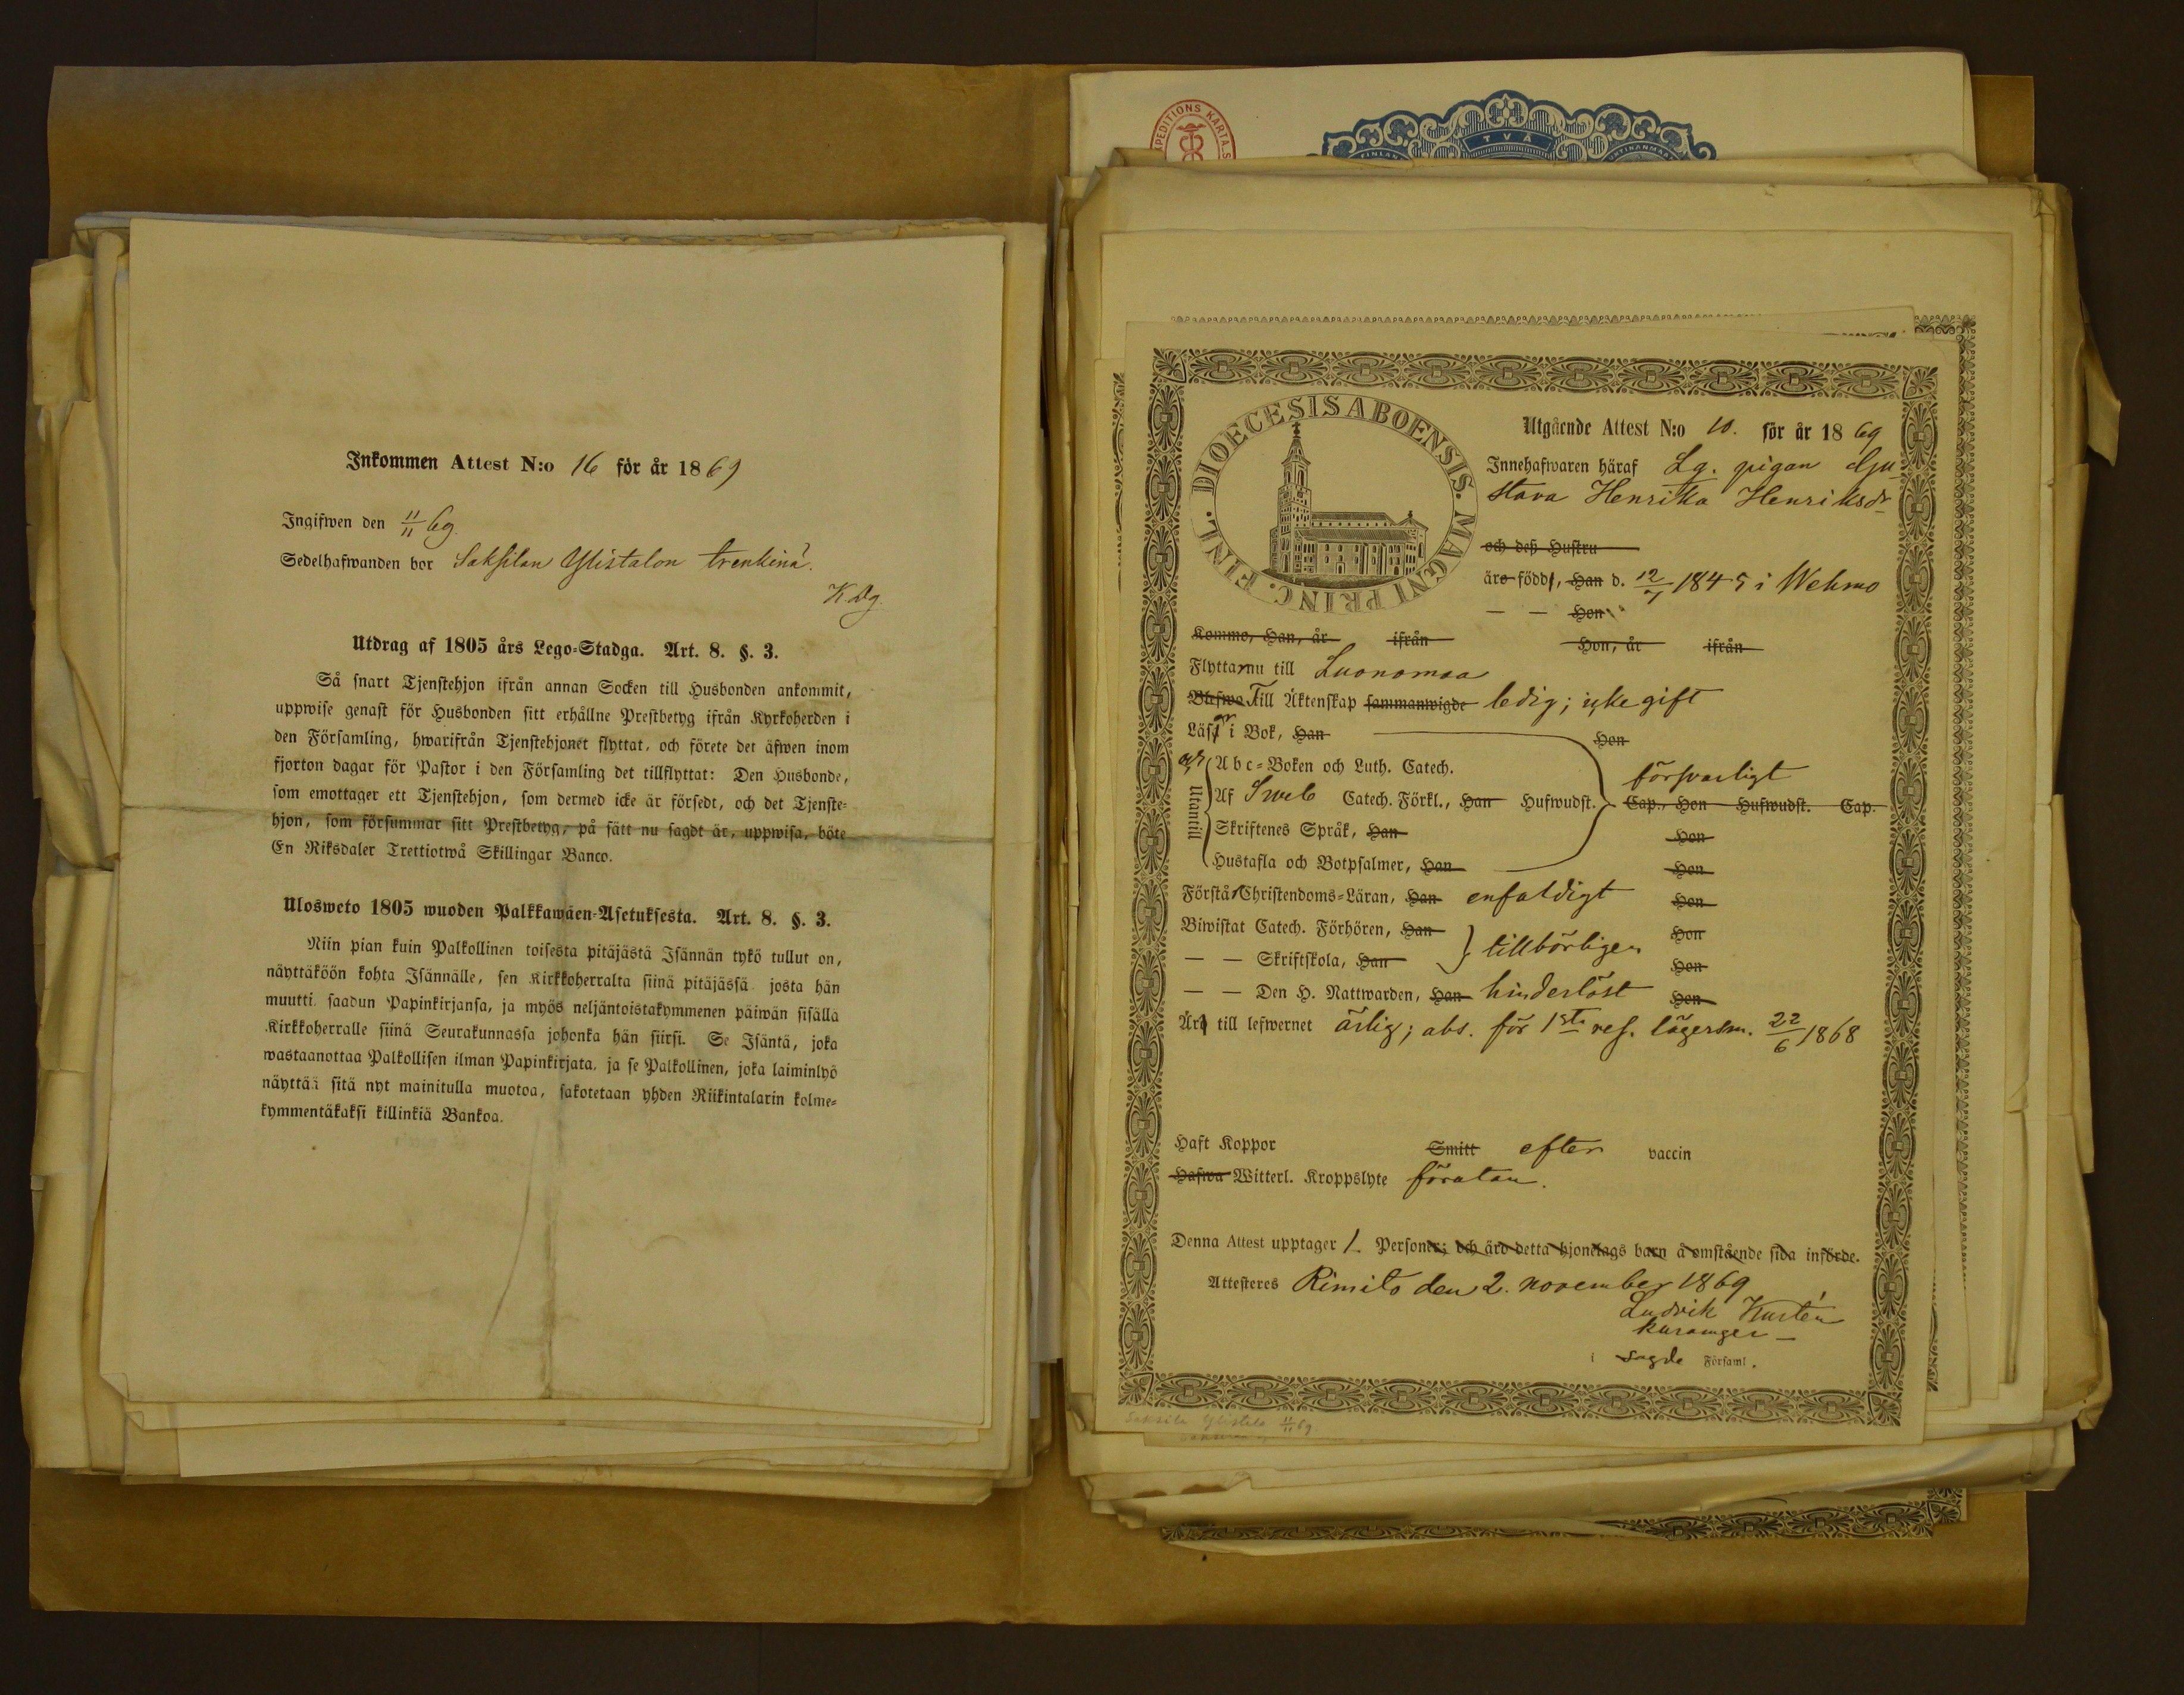 Inkommen Attest N:o 16 för år 1869
Ingifwen den 11/11 69.
Sedelhafwanden bor Saksilan Ylistalon trenkinä.
K. dg.
Utdrag af 1805 års Lego-Stadga. Art. 8. §. 3.
Så snart Tjenstehjon ifrån annan Socken till Husbonden ankommit,
uppwise genast för Husbonden sitt erhållne Prestbetyg ifrån Kyrkoherden i
den Församling, hwarifrån Tjenstehjonet flyttat, och förete det äfwen inom
fjorton dagar för Pastor i den Församling det tillflyttat: Den Husbonde,
som emottager ett Tjenstehjon, som dermed icke är försedt, och det Tjenste-
hjon, som försummar sitt Prestbetyg, på sätt nu sagdt är, uppwisa, böte
En Riksdaler Trettiotwå Skillingar Banco.
Ulosweto 1805 wuoden Palkkawäen-Asetuksesta. Art. 8. §. 3.
Niin pian kuin Palkollinen toisesta pitäjästä Isännän tykö tullut on,
näyttäköön kohta Isännälle, sen Kirkkoherralta siinä pitäjässä josta hän
muutti saadun Papinkirjansa, ja myös neljäntoistakymmenen päiwän sisälla
Kirkkoherralle siinä Seurakunnassa johonka hän siirsi. Se Isäntä, joka
wastaanottaa Palkollisen ilman Papinkirjata, ja se Palkollinen, joka laiminlyö
näyttää sitä nyt mainitulla muotoa, sakotetaan yhden Riikintalarin kolme-
kymmentäkaksi killinkiä Bankoa.
EXPEDITIONS KARTA.S
TVÅ
FINLAN
DIOECESIS ABOENSIS. MAGNI PRINC. FINL.
Utgående Attest N:o 10. för år 1869
Innehafwaren häraf Lg. pigan Gu
stava Henrika Henriksdr
och dess Hustru
äro född, Han d. 12/7 1845 i Wehmo
— — Hon
Kommo, Han, år ifrån Hon, år ifrån
Flyttar nu till Luonomaa
Blifwo Till Äktenskap sammanwigde ledig; icke gift
Läser i Bok, Han Hon
Utantill
Abc-Boken och Luth. Catech.
försvarligt
Af Sweb Catech. Förkl., Han Hufwudst. Cap., Hon Hufwudst. Cap.
Skriftenes Språk, Han Hon
Hustafla och Botpsalmer, Han Hon
Förstår Christendoms-Läran, Han enfaldigt Hon
Biwistat Catech. Förhören, Han } tillbörligen Hon
— — Skriftskola, Han Hon
— — Den H. Nattwarden, Han hinderlöst Hon
Är till lefwernet ärlig; abs. för 1sta res. lägersm. 22/6 1868
Haft Koppor Smitt efter vaccin
Hafwa Witterl. Kroppslyte förutan.
Denna Attest upptager 1 Personer; och äro detta hjonelags barn å omstående sida införde.
Attesteres Rimito den 2. november 1869
Ludvik Kurtén
i sagde Församl.
Saksila Ylistalo 11/11 69